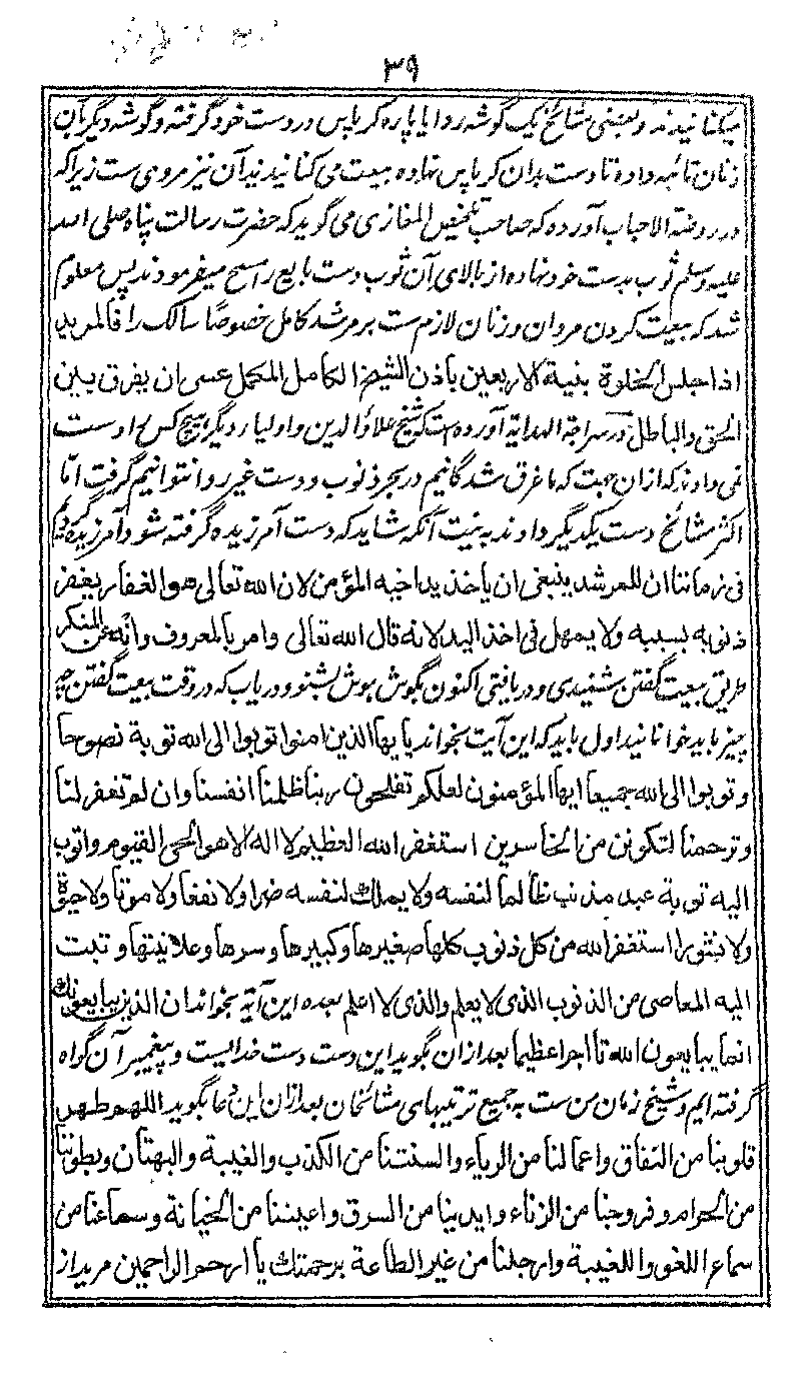 ۳۹
میکنانیدند و بعضی مشائخ یک گوشه ردا یا پاره کرپاس در دست خود گرفته و گوشه دیگر بآن
زنان تائبه داده تا دست بدان کرپاس نهاده بیعت می کنانیدند آن نیز مروی ست زیرا که
در روضة الاحباب آورده که صاحب تلخیص المغازی می گوید که حضرت رسالت پناه صلی الله
علیه وسلم ثوب بدست خود نهاده از بالای آن ثوب دست بایع را مسح میفرمودند پس معلوم
شد که بیعت کردن مردان و زنان لازم ست بر مرشد کامل خصوصًا سالک را فالمرید
اذا جلس الخلوة بنیة الاربعین باذن الشیخ الکامل المکمل عسی ان یفرق بین
الحق والباطل در سراجة الهدایة آورده ست که شیخ علاؤ الدین و اولیاء دیگر هیچ کس را دست
نمی دادند که ازان جهت که ما غرق شدگانیم در بحر ذنوب و دست غیر روا نتوانیم گرفت امّا
اکثر مشائخ دست یکدیگر دادند به نیت آنکه شاید که دست آمرزیده گرفته شود آمرزیده گردیم
فی زماننا ان للمرشد ینبغی ان یأخذ ید اخیه المؤمن لان الله تعالی هو الغفار یغفر
ذنوبه بسببه ولا یمهل فی اخذ الید لانه قال الله تعالی وامر بالمعروف وانه عن المنکر
طریق بیعت گفتن شنیدی و دریافتی اکنون بگوش هوش بشنو و دریاب که در وقت بیعت گفتن چه
چیز باید خوانانید اول باید که این آیت بخواند یایها الذین امنوا توبوا الی الله توبة نصوحا
وتوبوا الی الله جمیعا ایها المؤمنون لعلکم تفلحون ربنا ظلمنا انفسنا وان لم تغفر لنا
وترحمنا لنکونن من الخاسرین استغفر الله العظیم لا اله الا هو الحی القیوم واتوب
الیه توبة عبد مذنب ظالما لنفسه ولا یملك لنفسه ضرا ولا نفعا ولا موتا ولا حیوة
ولا نشورا استغفر الله من کل ذنوب کلها صغیرها وکبیرها وسرها وعلانیتها وتبت
الیه المعاصی من الذنوب الذی لا یعلم والذی لا اعلم بعده این آیه بخواند ان الذین یبایعونك
انما یبایعون الله تا اجرا عظیما بعد ازان بگوید این دست دست خدایست و پیغمبر آن گواه
گرفته ایم و شیخ زمان من ست به جمیع ترتیبهای مشائخان بعد ازان این دعا بگوید اللهم طهر
قلوبنا من النفاق واعمالنا من الریاء والسنتنا من الکذب والغیبة والبهتان وبطوننا
من الحرام وفروجنا من الزناء وایدینا من السرق واعیننا من الخیانة وسماعنا من
سماع اللغو واللغیبة وارجلنا من غیر الطاعة برحمتك یا ارحم الراحمین مرید از